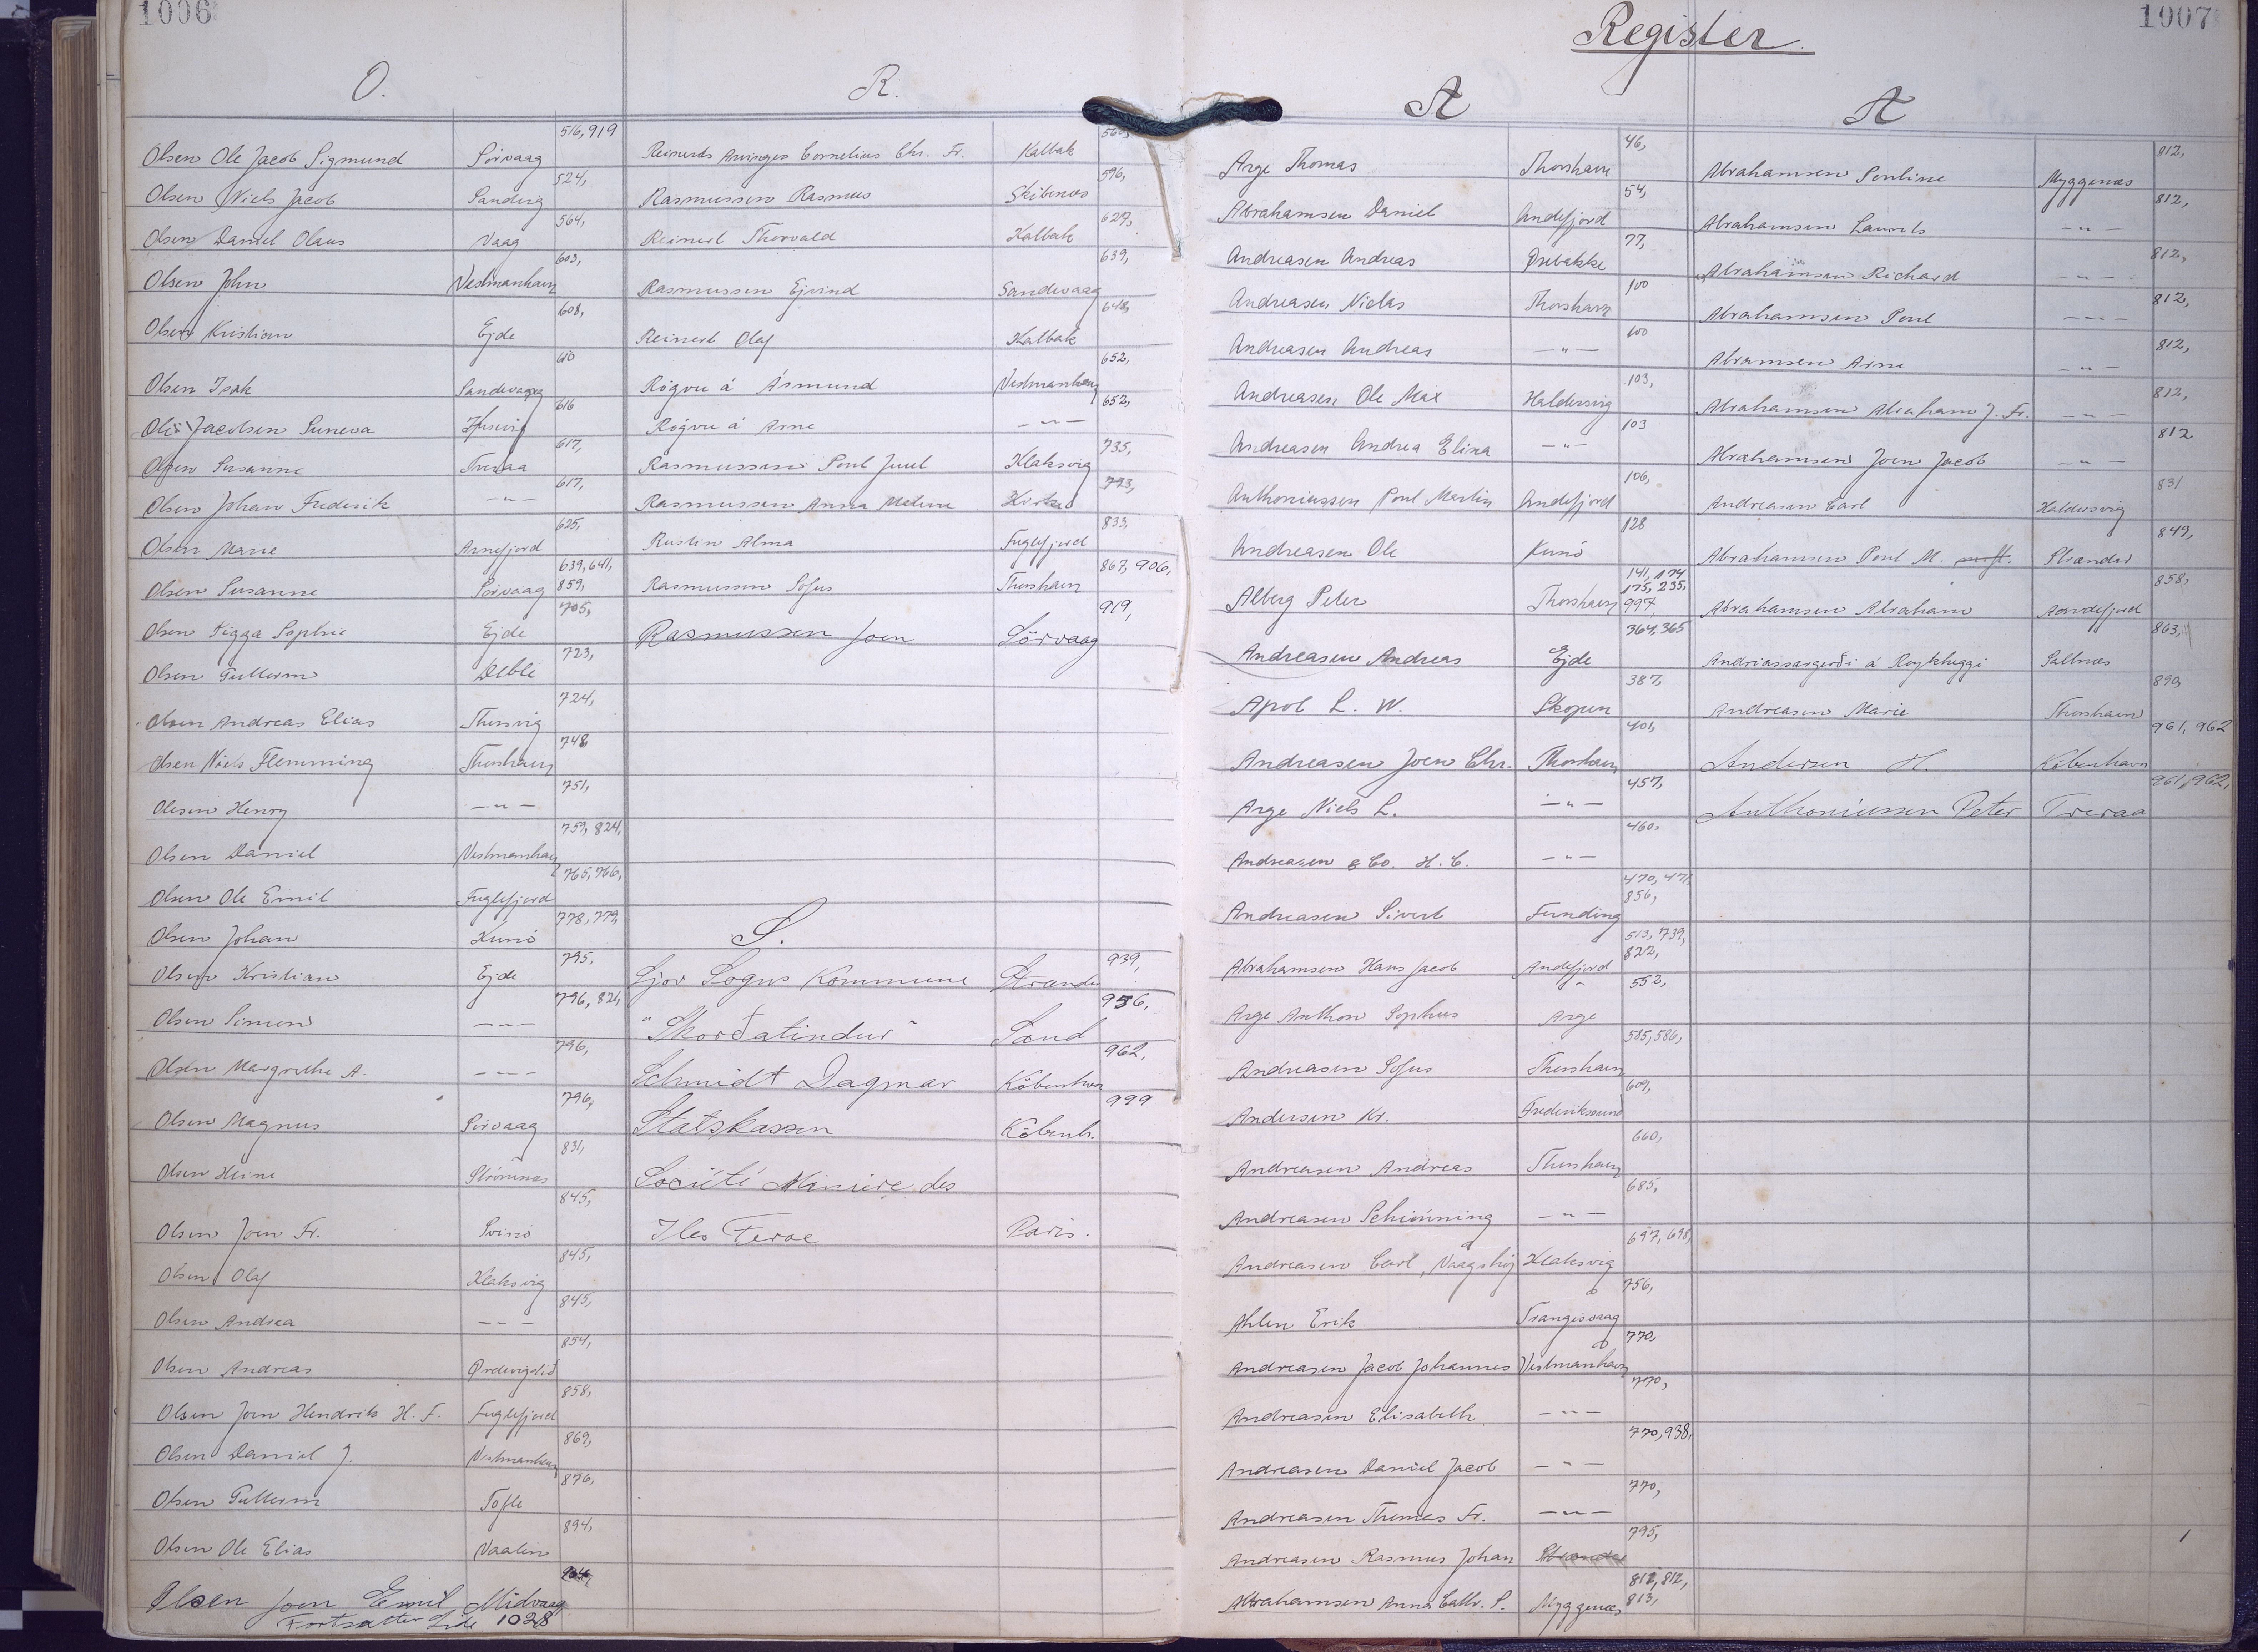 1006
O.
516, 919
Olsen Ole Jacob Sigmund Sörvaag
524,
Olsen Niels Jacob Sandvig
564,
Olsen Daniel Olaus Vaag
603,
Olsen John Vestmanhavn
608,
Olsen Kristian Ejde
610
Olsen Isak Sandevaag
616
Jacobsen Suneva Husevig
617,
Olsen Susanne
617,
Olsen Johan Frederik -"-
625,
Olsen Marie Arnefjord
639, 641,
Olsen Susanne Sörvaag 859,
705,
Olsen Sigga Sophie Ejde
723,
Olsen Gullerm Deble
724,
Olsen Andreas Elias Thorsvig
748
Olsen Niels Flemming Thorshavn
751,
Olesen Henry -"-
759, 824,
Olsen Daniel Vestmanhavn
765, 766,
Olsen Ole Emil Fuglefjord
778, 779,
Olsen Johan Kunö
795,
Olsen Kristian Ejde
796, 824,
Olsen Simon -"-
796,
Olsen Margrethe A. -"-
796,
Olsen Magnus Sörvaag
831,
Olsen Heine Strömnæs
845,
Olsen Joen Fr. Svinö
845,
Olsen Olaf Klaksvig
845,
Olsen Andrea - - -
854,
Olsen Andreas
858,
Olsen Joen Hendrik H. F. Fuglefjord
869,
Olsen Daniel J. Vestmanhavn
876,
Olsen Gullerm Tofte
894,
Olsen Ole Elias Vaalen
964,
Olsen Joen Emil Midvaag
Fortsætter Side 1028
R.
Reinerts Cornelius Chr. Fr. Kalbak
596,
Rasmussen Rasmus Skibenæs
627,
Reinert Thorvald Kalbak
639,
Rasmussen Ejvind Sandevaag
648,
Reinert Olaf Kalbak
652,
Rógvu á Ásmund Vestmanhavn
652,
Rógvu á Arne -"-
735,
Rasmussen Poul Juul Klaksvig
793,
Rasmussen Anna Malene
833.
Rustin Alma Fuglefjord
867, 906,
Rasmussen Sofus Thorshavn
919,
Rasmussen Joen Sörvaag
S.
939,
Sjov Sogns Kommune Strænder
956,
"Skorðatindur" Sand
962,
Schmidt Dagmar Köbenhavn
999
Statskassen Köbenh.
Société Miniere des
Iles Feroe Paris.
1007
Register
A
46,
Arge Thomas Thorshavn
54,
Abrahamsen Daniel Andefjord
77,
Andreasen Andreas Qvebakke
100
Andreasen Niclas Thorshavn
100
Andreasen Andreas -"-
103,
Andreasen Ole Max Haldersvig
103
Andreasen Andrea Elina -"-
106,
Anthoniussen Poul Martin Andefjord
128
Andreasen Ole Kunö
141, 174
175, 235,
Alberg Peter Thorshavn 997
364, 365
Andreasen Andreas Ejde
387,
Apol L. W. Skopun
401,
Andreasen Joen Chr. Thorshavn
457,
Arge Niels L. -"-
460,
Andreasen & Co. H. C. -"-
470, 471,
856,
Andreasen Sivert Funding
513, 739,
822,
Abrahamsen Hans Jacob Andefjord
552,
Arge Anthon Sophus Arge
585, 586,
Andreasen Sofus Thorshavn
609,
Andersen Kr. Frederikssund
660,
Andreasen Andreas Thorshavn
685,
Andreasen Schiönning -"-
697, 698,
Andreasen Carl, Vaagshöj Klaksvig
756,
Ahlen Erik Trangisvaag
770,
Andreasen Jacob Johannes Vestmanhavn
770,
Andreasen Elisabeth -"-
770, 938,
Andreasen Daniel Jacob -"-
770,
Andreasen Thomas Fr. -"-
795,
Andreasen Rasmus Johan Strænder
812, 812,
Abrahamsen Anna Cathr. S. Myggenæs 813,
A
812,
Abrahamsen Pouline Myggenæs
812,
Abrahamsen Laurits -"-
812,
Abrahamsen Richard -"-
812,
Abrahamsen Poul -"-
812,
Abramsen Arne -"-
812,
Abrahamsen Abraham J. Fr. -"-
812
Abrahamsen Joen Jacob -"-
831
Andreasen Carl Haldersvig
849,
Abrahamsen Poul M. Strænder
858,
Abrahamsen Abraham Andefjord
863,
Andriassargerði á Roykheyggi Saltnæs
890,
Andreasen Marie Thorshavn
961, 962
Andersen H. Köbenhavn
961, 962,
Anthoniussen Peter Tveraa